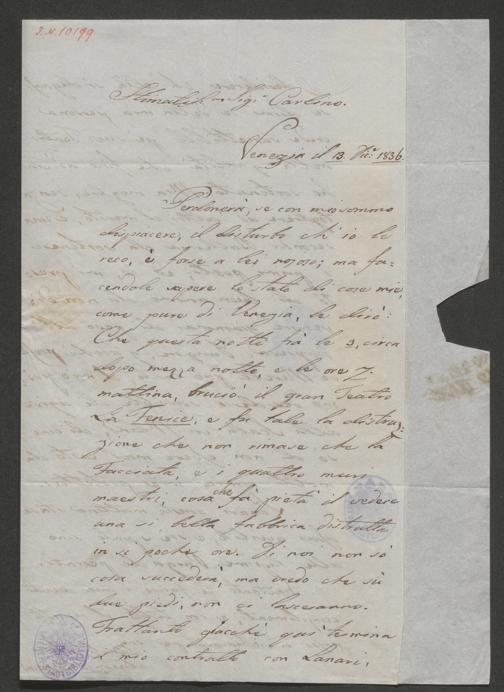 I.N. 10199
Stimatis.mo Sig.r Carlino.
Venezia il 13. Dic.e 1836.
Perdonerà, se con mio sommo
dispiacere, il disturbo ch'io le
reco, è forse a lei nojoso; ma fa=
cendole sapere lo stato di cose mie,
come pure di Venezia, le dirò:
Che questa notte frà le 3, circa
dopo mezza notte, e le ore 7.
mattina, bruciò il gran Teatro
La Fenice, e fu tale la distru=
zione che non rimase che la
Facciata, e i quattro muri
maestri, cosa che fà pietà il vedere
una si bella fabbrica distrutta
in sè poche ore. Di noi, non sò
cosa succederà, ma credo che sù
due piedi, non ci lasceranno.
Trattanto giacchè qui termina
il mio contratto con Lanari,